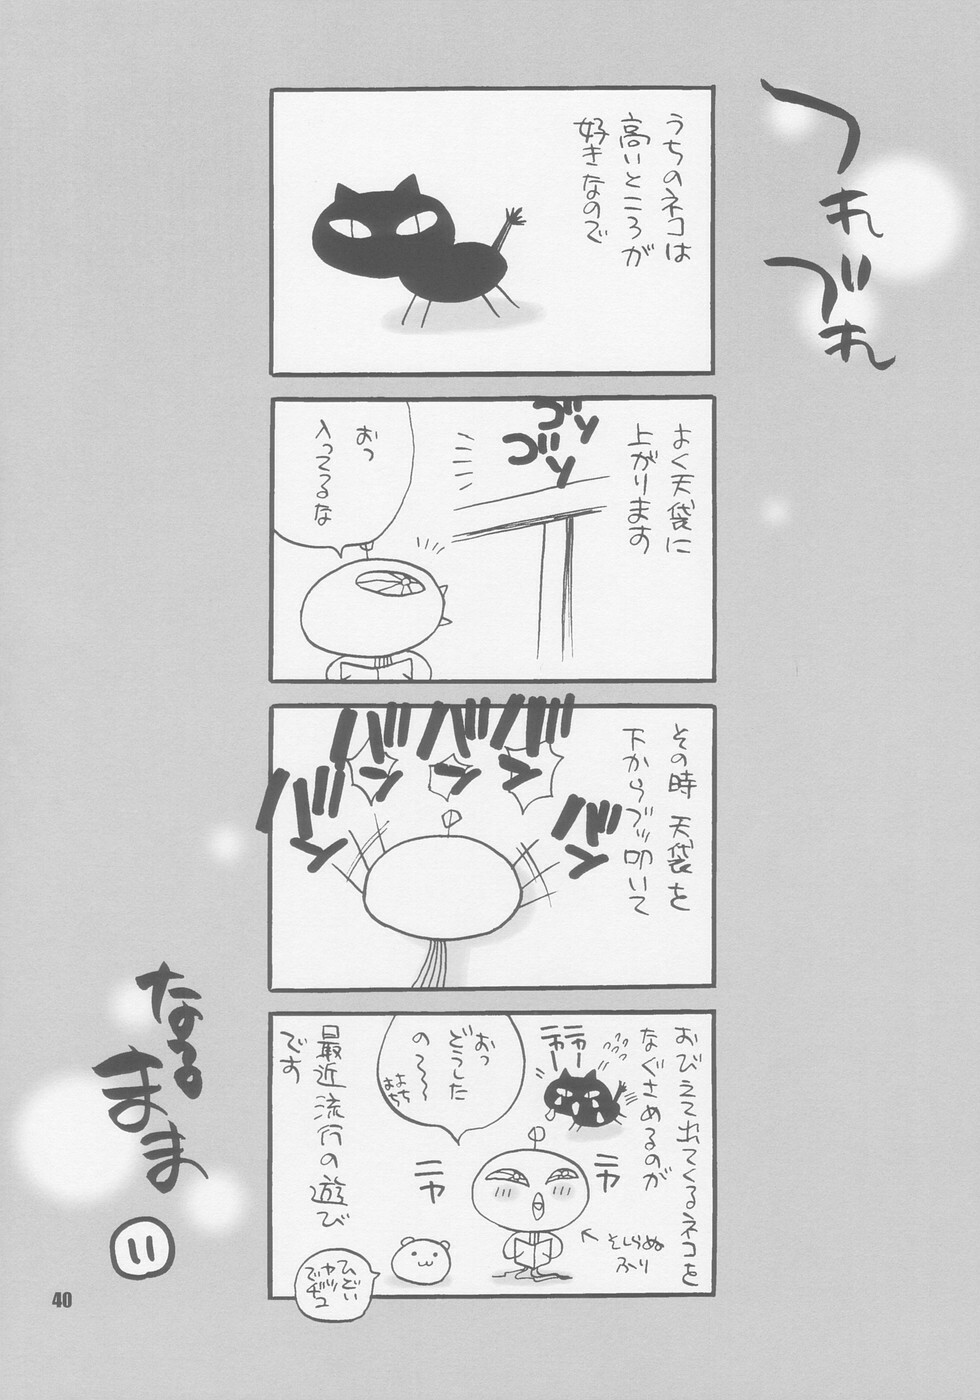 つれ
づれ
うちのネコは
高いところが
好きなので
よく天袋に
上がります
ゴソ
ゴソ
おっ
入ってるな
その時 天袋を
下からブッ叩いて
バン
バン
バン
バン
バン
おびえておりてくるネコを
なぐさめるのが
ニャー
ニャー
おっ
どうした
の〜〜
よち
よち
ニヤ
ニヤ
←そしらぬ
ふり
最近流行の遊び
です
ひどい
ヤツ
でヂュ
なる
まま
11
40